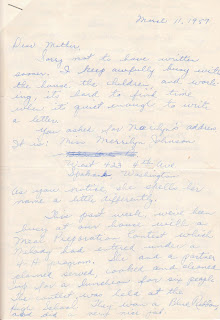 March 11, 1959
Dear Mother,
Sorry not to have written
sooner. I keep awfully busy with
the house, the children, and work-
ing, it's hard to find time
when it's quiet enough to write
a letter.
You asked for Merrilyn's address
It is: Miss Merrilyn Johnson
West 423 6th Ave
Spokane Washington
As you notice she spells her
name a little differently.
This past week, we've been
busy at our house with a
Meal Preparation Contest which
had entered under a
4-H program. She and a partner
planned, served, cooked and cleaned
up for a luncheon for six people
The contest was held at the
high school. They won a Blue Ribbon
and did very nice